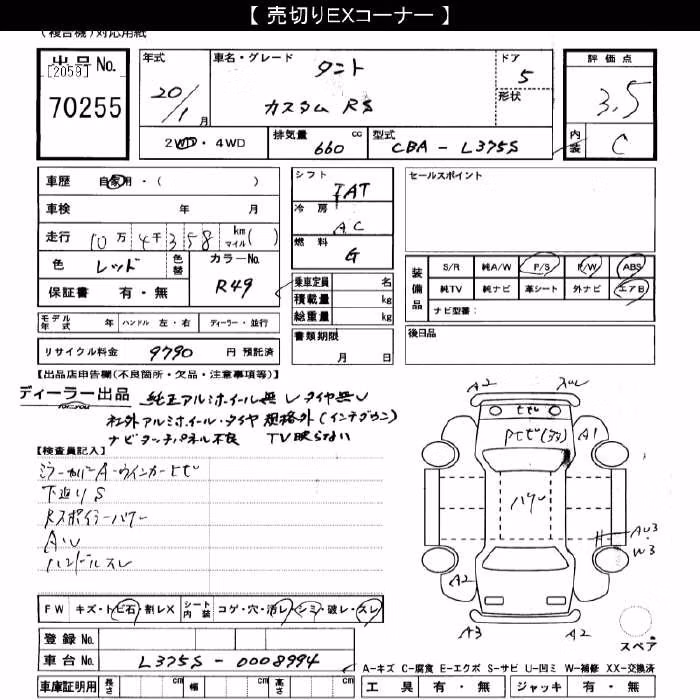 【 売切りEXコーナー 】
(複合機)対応用紙
出品No.
[2059]
70255
年式 20/1 月
車名・グレード タント
カスタム RS
ドア 5
形状
評価点 3.5
内装 C
2WD・4WD
排気量 660 cc
型式 CBA - L375S
車歴 自家用・( )
車検 年 月
走行 10万 4千358 km マイル( )
色 レッド 色替
カラーNo. R49
保証書 有・無
シフト IAT
冷房 AC
燃料 G
乗車定員 名
積載量 kg
総重量 kg
セールスポイント
装備品 S/R 純A/W P/S P/W ABS
純TV 純ナビ 革シート 外ナビ エアB
ナビ型番:
モデル年式 年 ハンドル 左・右 ディーラー・並行
書類期限 月 日
後日品
リサイクル料金 9790 円 預託済
【出品店申告欄(不良箇所・欠品・注意事項等)】
ディーラー出品 純正アルミホイール無し タイヤ無し
社外アルミホイール・タイヤ 規格外(インチダウン)
ナビタッチパネル不良 TV映らない
【検査員記入】
ミラーカバーA・ウインカーヒビ
下廻りS
Rスポイラーハワレー
A・U
ハンドルスレ
A2 スレ
ヒビ
A1
ハワレー
AU3
W3
A2
A3 A2
スペア
FW キズ・トビ石・割レX シート内装 コゲ・穴・汚レ・シミ・破レ・スレ
登録No.
車台No. L375S - 0008994
A-キズ C-腐食 E-エクボ S-サビ U-凹ミ W-補修 XX-交換済
車庫証明用 長さ cm 幅 cm 高さ cm
工具 有・無 ジャッキ 有・無